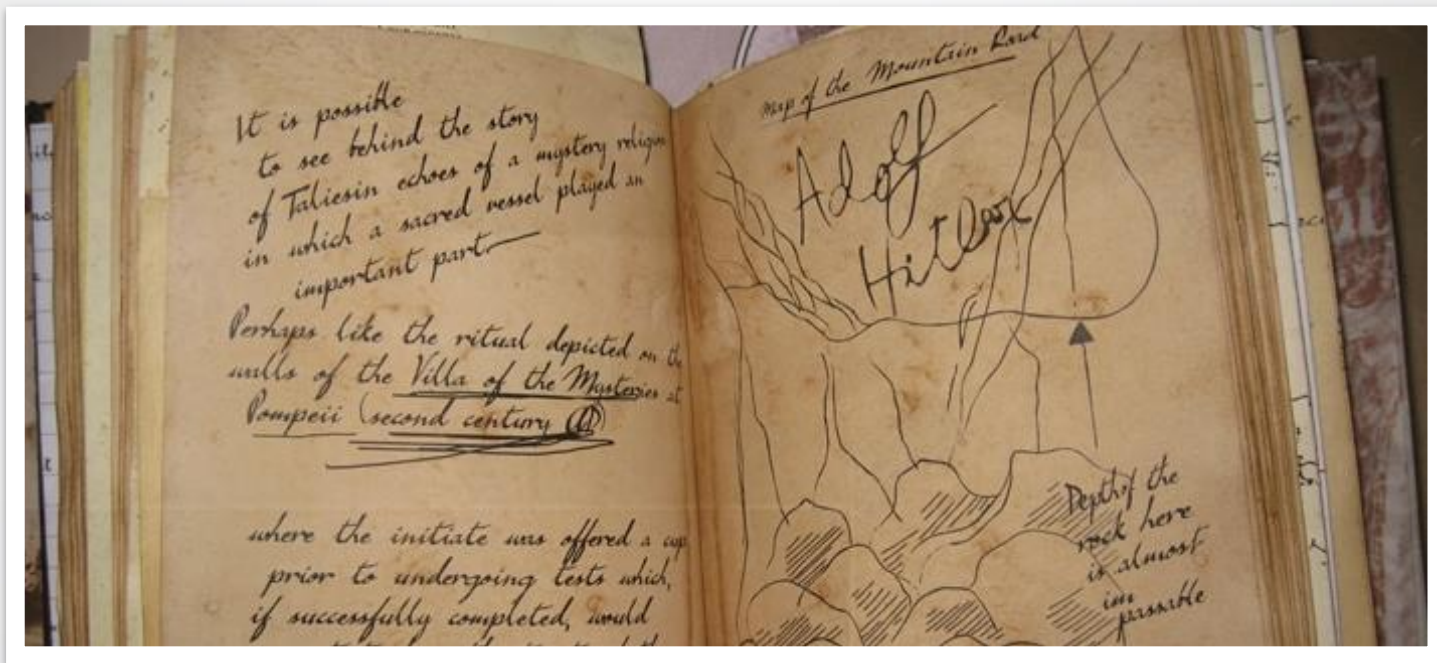 It is possible
to see behind the story
of Taliesin echoes of a mystery religion
in which a sacred vessel played an
important part.
Perhaps like the ritual depicted on the
walls of the Villa of the Mysteries at
Pompeii (second century
where the initiate was offered a cup
prior to undergoing tests which,
if successfully completed, would
Map of the Mountain
Adolf
Hitler
Depth of the
rock here
is almost
im
passable